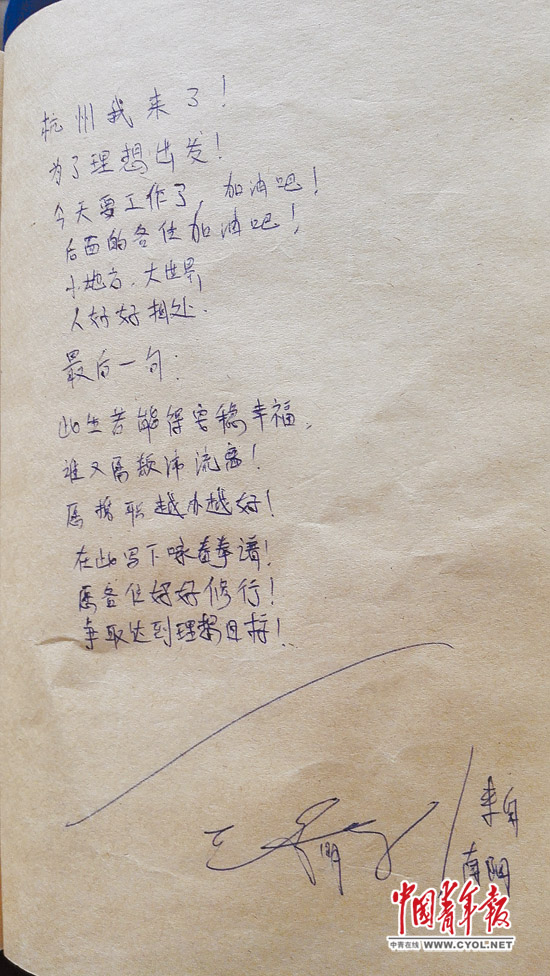 杭州我来了！
为了理想出发！
今天要工作了，加油吧！
后面的各位加油吧！
小地方，大世界，
人好好相处.
最后一句：
此生若能得安稳幸福，
谁又愿颠沛流离！
愿携职越办越好！
在此写下咏春拳谱！
愿各位好好修行！
争取达到理想目标！
来自
南阳
中国青年报
中青在线 WWW.CYOL.NET